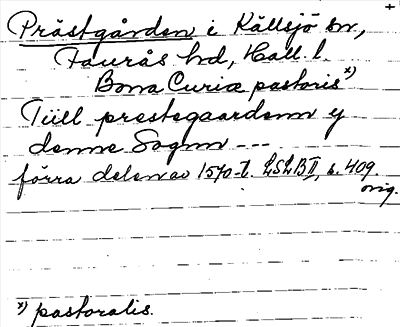 +
Prästgården i Källsjö sn,
Faurås hd, Hall. l.
Bona Curiæ pastoris x)
Tiill prestegaardenn y
denne Sognn ---
förra delen av 1570-t. LSLB II, s. 409
orig.
x) pastoralis.